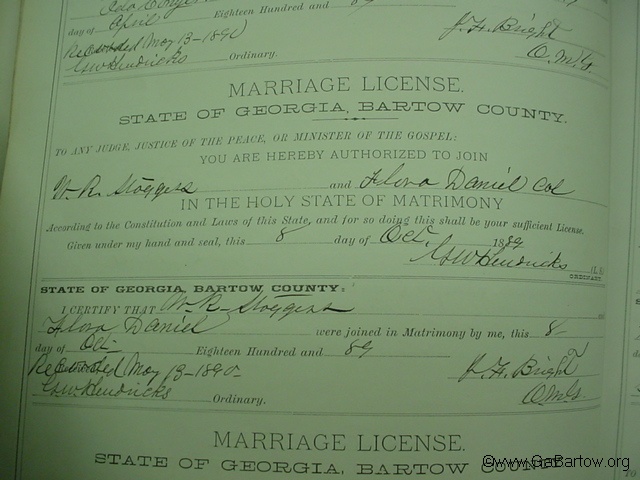 day of April Eighteen Hundred and 89
Recorded May 13-1890 J. H. Bright
GW Hendricks Ordinary. O.M.G.
MARRIAGE LICENSE.
STATE OF GEORGIA, BARTOW COUNTY.
TO ANY JUDGE, JUSTICE OF THE PEACE, OR MINISTER OF THE GOSPEL:
YOU ARE HEREBY AUTHORIZED TO JOIN
W. R. Stoggess and Flora Daniel Col
IN THE HOLY STATE OF MATRIMONY
According to the Constitution and Laws of this State, and for so doing this shall be your sufficient License.
Given under my hand and seal, this 8 day of Oct. 1889
GW Hendricks (L. S.)
ORDINARY.
STATE OF GEORGIA, BARTOW COUNTY:
I CERTIFY THAT W. R. Stoggess and
Flora Daniel were joined in Matrimony by me, this 8
day of Oct. Eighteen Hundred and 89
Recorded May 13-1890 J. H. Bright
GW Hendricks Ordinary. O.M.G.
MARRIAGE LICENSE.
STATE OF GEORGIA, BARTOW COUNTY.
©www.GaBartow.org